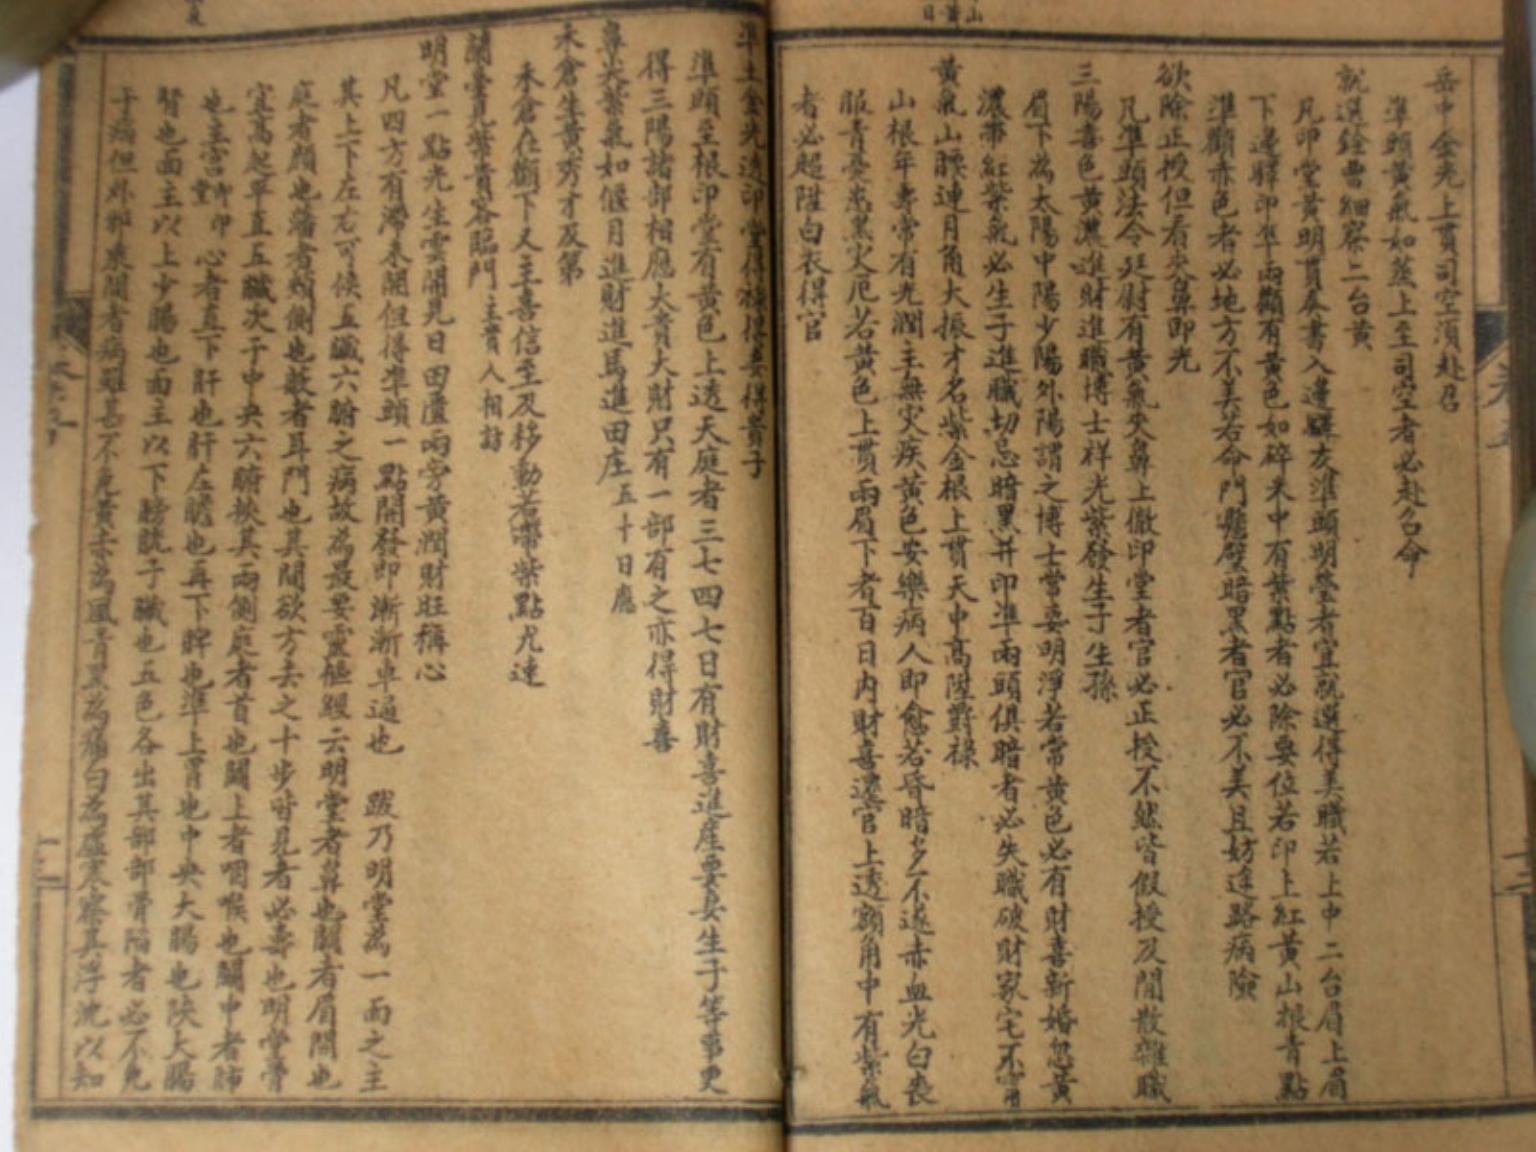 岳中金光上貫司空須赴召
準頭黃氣如蒸上至司空者必赴召命
就選銓曹細察二台黃
凡印堂黃明貫奏書入邊驛友準頭明瑩者宜就選得美職若上中二台眉上眉
下邊驛印準兩顴有黃色如碎米中有紫點者必除要位若印上紅黃山根青點
準顴赤色者必地方不美若命門懸壁暗黑者官必不美且妨途路病險
欲除正授但看夾鼻即光
凡準頭法令廷尉有黃氣夾鼻上徹印堂者官必正授不然皆假授及閒散雜職
三陽喜色黃濃進財進職博士祥光紫發生子生孫
眉下為太陽中陽少陽外陽謂之博士常要明淨若常黃色必有財喜新婚忽黃
濃帶紅紫氣必生子進職切忌暗黑并印準兩頭俱暗者必失職破財家宅不寧
黃氣山腰連月角大振才名紫金根上貫天中高陞爵祿
山根年壽常有光潤主無灾疾黃色安樂病人即愈若昏暗多不遂赤血光白喪
服青憂驚黑灾厄若黃色上貫兩眉下者百日內財喜還官上透額角中有紫氣
者必超陞白衣得官
準土金光透印堂得祿得妻得貴子
準頭至根印堂有黃色上透天庭者三七四七日有財喜進産要妻生子等事更
得三陽諸部相應大貴大財只有一部有之亦得財喜
鼻夾紫氣如偃月進財進馬進田庄五十日應
禾倉生黃秀才及第
禾倉在顴下又主喜信至及移動若帶紫點尤速
蘭臺見紫貴客臨門主貴人相訪
明堂一點光生雲開見日田廬兩旁黃潤財旺稱心
凡四方有滯未開但得準頭一點開發即漸漸卓遍也 跋乃明堂為一面之主
其上下左右可候五臟六腑之病故為最要靈樞經云明堂者鼻也闕者眉間也
庭者顏也藩者頰側也蔽者耳門也其間欲方去之十步皆見者必壽也明堂骨
宜高起平直五臟次于中央六腑挾其兩側庭者首也闕上者咽喉也闕中者肺
也主宮堂即印心者直下肝也肝左膽也再下脾也準上胃也中央大腸也陝大腸
腎也面主以上少腸也面主以下膀胱子臟也五色各出其部部骨陷者必不免
于病但外邪乘間者病雖甚不免黃赤為風青黑為痛白為虛寒察其浮沈以知